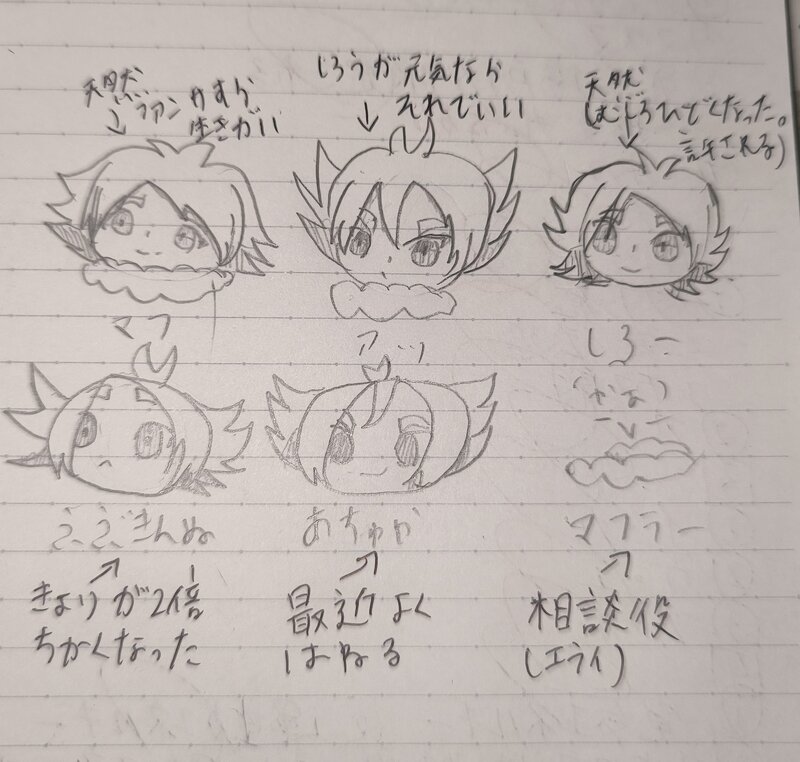 天然
ファンサすら
生きがい
しろうが元気なら
それでいい
天然
(むしろひどくなった。
許される)
マフ
アツ
しろー
ううごきんぬ
あちゅや
マフラー
きょりが2倍
ちかくなった
最近よく
はねる
相談役
(エライ)